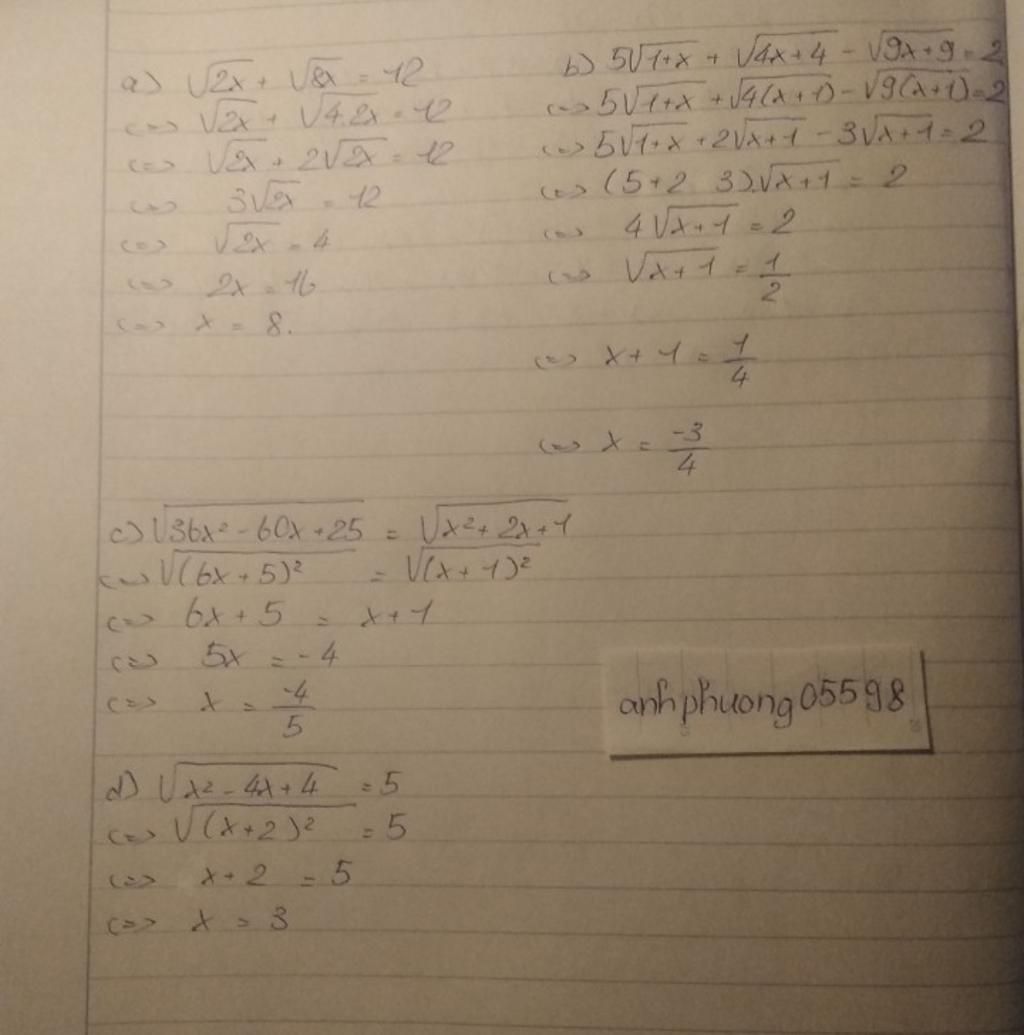 a) √2x + √8x = 12
<=> √2x + √4.2x = 12
<=> √2x + 2√2x = 12
<=> 3√2x = 12
<=> √2x = 4
<=> 2x = 16
<=> x = 8.
b) 5√1+x + √4x+4 - √9x+9 = 2
<=> 5√1+x + √4(x+1) - √9(x+1) = 2
<=> 5√1+x + 2√x+1 - 3√x+1 = 2
<=> (5+2 3).√x+1 = 2
<=> 4√x+1 = 2
<=> √x+1 = 1/2
<=> x + 1 = 1/4
<=> x = -3/4
c) √36x² - 60x + 25 = √x² + 2x + 1
<=> √(6x + 5)² = √(x + 1)²
<=> 6x + 5 = x + 1
<=> 5x = -4
<=> x = -4/5
anhphuong05598
d) √x² - 4x + 4 = 5
<=> √(x+2)² = 5
<=> x + 2 = 5
<=> x = 3